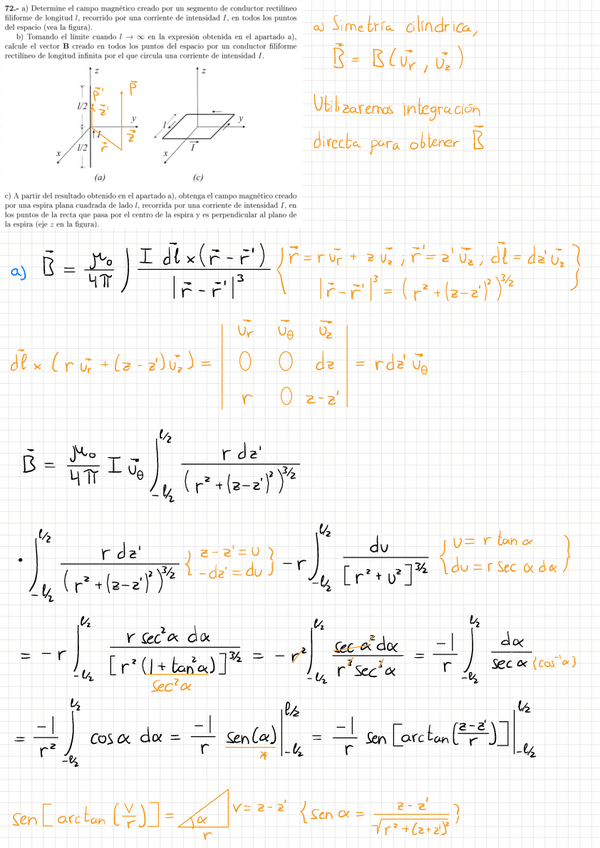 72.- a) Determine el campo magnético creado por un segmento de conductor rectilíneo
filiforme de longitud l, recorrido por una corriente de intensidad I, en todos los puntos
del espacio (vea la figura).
b) Tomando el límite cuando l → ∞ en la expresión obtenida en el apartado a),
calcule el vector B creado en todos los puntos del espacio por un conductor filiforme
rectilíneo de longitud infinita por el que circula una corriente de intensidad I.
z
z
P⃗' P⃗
l/2 z⃗'
y
y
I
l
l/2 r⃗ z⃗
x
x
I
(a)
(c)
c) A partir del resultado obtenido en el apartado a), obtenga el campo magnético creado
por una espira plana cuadrada de lado l, recorrida por una corriente de intensidad I, en
los puntos de la recta que pasa por el centro de la espira y es perpendicular al plano de
la espira (eje z en la figura).
a) Simetría cilíndrica,
B⃗ = B(u⃗r, u⃗z)
Utilizaremos integración
directa para obtener B⃗
a) B⃗ = μ₀/4π ∫ I dl⃗ × (r⃗ - r⃗')/|r⃗ - r⃗'|³ { r⃗ = r u⃗r + z u⃗z, r⃗' = z' u⃗z; dl⃗ = dz' u⃗z
|r⃗ - r⃗'|³ = (r² + (z-z')²)^3/2 }
dl⃗ × (r u⃗r + (z - z') u⃗z) = | u⃗r u⃗θ u⃗z
0 0 dz
r 0 z-z' | = r dz' u⃗θ
B⃗ = μ₀/4π I u⃗θ ∫_-l/2^l/2 r dz'/(r² + (z-z')²)^3/2
• ∫_-l/2^l/2 r dz'/(r² + (z-z')²)^3/2 { z - z' = u, -dz' = du } -r ∫_-l/2^l/2 du/[r² + u²]^3/2 { u = r tan α, du = r sec α dα }
= -r ∫_-l/2^l/2 r sec²α dα/[r² (1 + tan²α)]^3/2 = -r² ∫_-l/2^l/2 sec α² dα/r³ sec³α = -1/r ∫_-l/2^l/2 dα/sec α {cos⁻¹α}
sec²α
= -1/r² ∫_-l/2^l/2 cos α dα = -1/r sen(α) |_-l/2^l/2 = -1/r sen [arctan(z-z'/r)] |_-l/2^l/2
*
sen [arctan (v/r)] = α r v = z - z' { sen α = z - z'/√(r² + (z+z')²) }